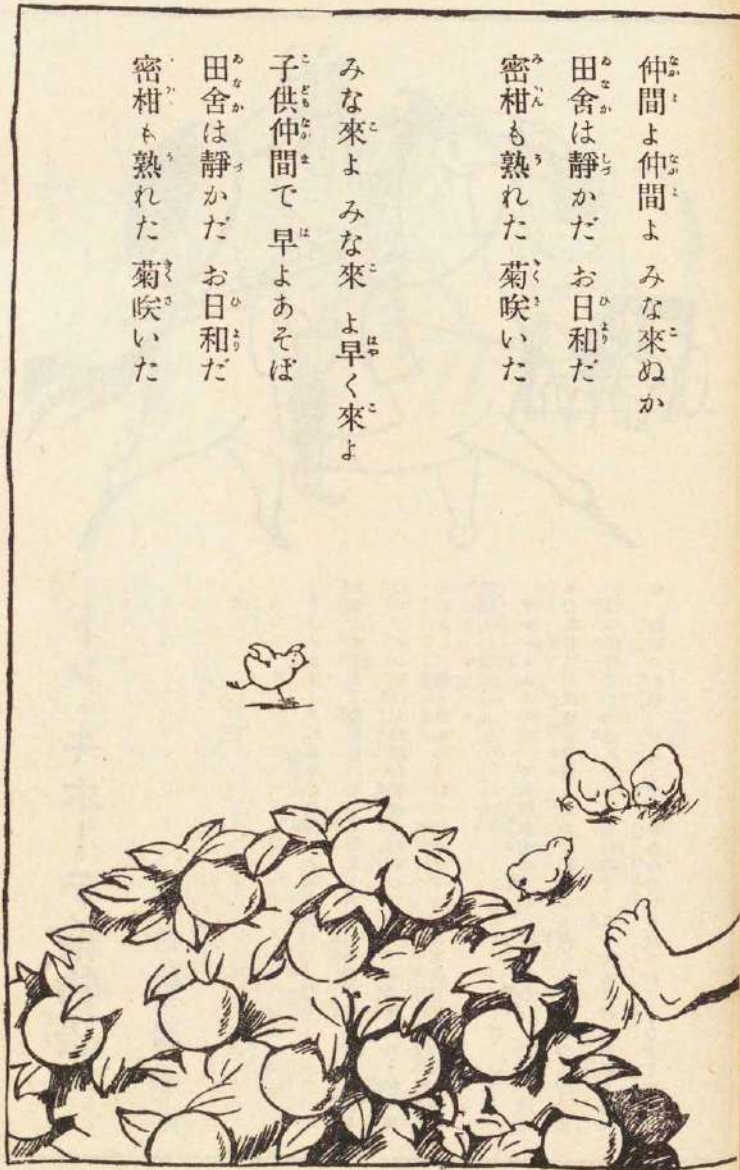 仲間よ仲間よ みな來ぬか
田舍は靜かだ お日和だ
密柑も熟れた 菊咲いた
みな來よ みな來 よ早く來よ
子供仲間で 早よあそぼ
田舍は靜かだ お日和だ
密柑も熟れた 菊咲いた